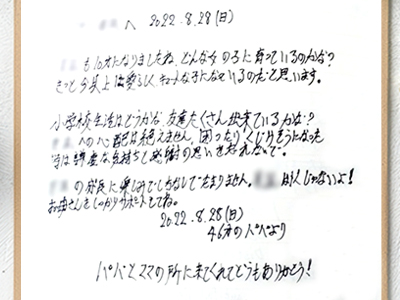 へ 2022.8.28(日)
も10才になりましたね。どんな女の子に育っているのかな?
きっと今以上に愛らしくキュートな子になっているのだと思います。
小学校生活はどうかな、友達たくさん出来ているかな?
への心配は絶えません。困ったり、くじけそうになった
時は謙虚な気持ちと感謝の思いを忘れないで。
の成長に楽しみでしょうがなくてたまりません。 は良じゃないよ!
お母さんをしっかりサポートしてね。
2022.8.28(日)
46才のパパより
パパとママの所に来てくれてどうもありがとう!